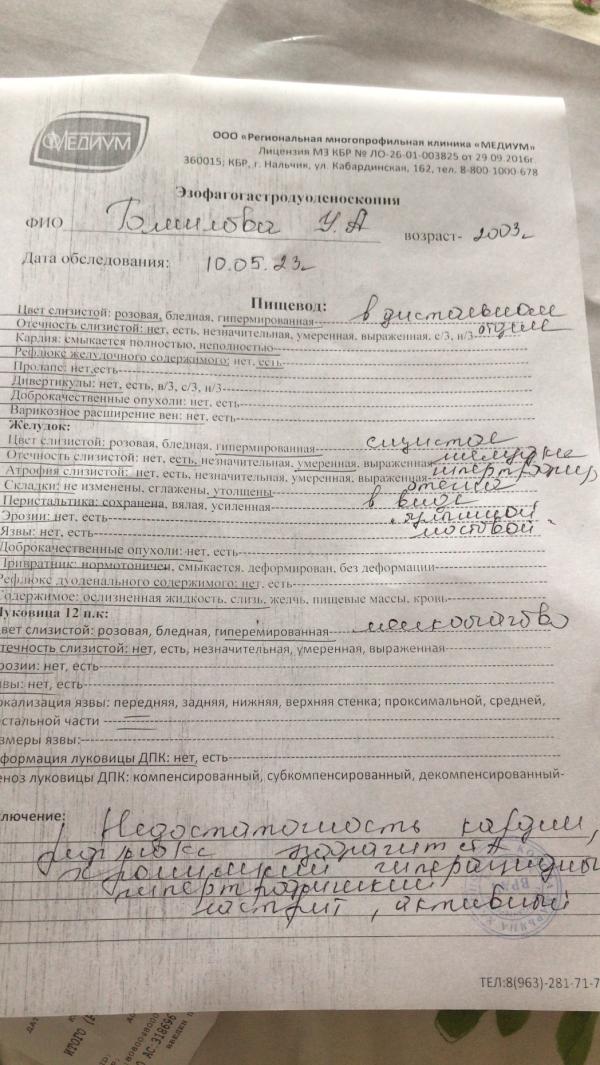 МЕДИУМ
ООО «Региональная многопрофильная клиника «МЕДИУМ»
Лицензия МЗ КБР № ЛО-26-01-003825 от 29 09.2016г.
360015; КБР, г. Нальчик, ул. Кабардинская, 162, тел. 8-800-1000-678
Эзофагогастродуоденоскопия
ФИО У. А возраст- 2003г
Дата обследования: 10.05.23г
Пищевод:
Цвет слизистой: розовая, бледная, гипермированная- в дистальном
Отечность слизистой: нет, есть, незначительная, умеренная, выраженная, с/3, н/3- отделе
Кардия: смыкается полностью, неполностью-
Рефлюкс желудочного содержимого: нет, есть-
Пролапс: нет,есть-
Дивертикулы: нет, есть, в/3, с/3, н/3-
Доброкачественные опухоли: нет, есть-
Варикозное расширение вен: нет, есть-
Желудок:
Цвет слизистой: розовая, бледная, гипермированная-
Отечность слизистой: нет, есть, незначительная, умеренная, выраженная- желудка
Атрофия слизистой: нет, есть, незначительная, умеренная, выраженная-
Складки: не изменены, сглажены, утолщены
Перистальтика: сохранена, вялая, усиленная- в виде
Эрозии: нет, есть- "булыжной
Язвы: нет, есть- мостовой"
Доброкачественные опухоли: нет, есть-
Привратник: нормотоничен, смыкается, деформирован, без деформации-
Рефлюкс дуоденального содержимого: нет, есть-
Содержимое: ослизненная жидкость, слизь, желчь, пищевые массы, кровь-
луковица 12 п.к:
цвет слизистой: розовая, бледная, гиперемированная- мелкоочагово
отечность слизистой: нет, есть, незначительная, умеренная, выраженная-
розии: нет, есть-
звы: нет, есть-
окализация язвы: передняя, задняя, нижняя, верхняя стенка; проксимальной, средней,
стальной части
змеры язвы:
еформация луковицы ДПК: нет, есть-
еноз луковицы ДПК: компенсированный, субкомпенсированный, декомпенсированный-
ключение: Недостаточность кардии,
рефлюкс эзофагит ст А
хронический гиперацидный
гипертрофический
гастрит, активный
ТЕЛ:8(963)-281-71-7
ИТОГО